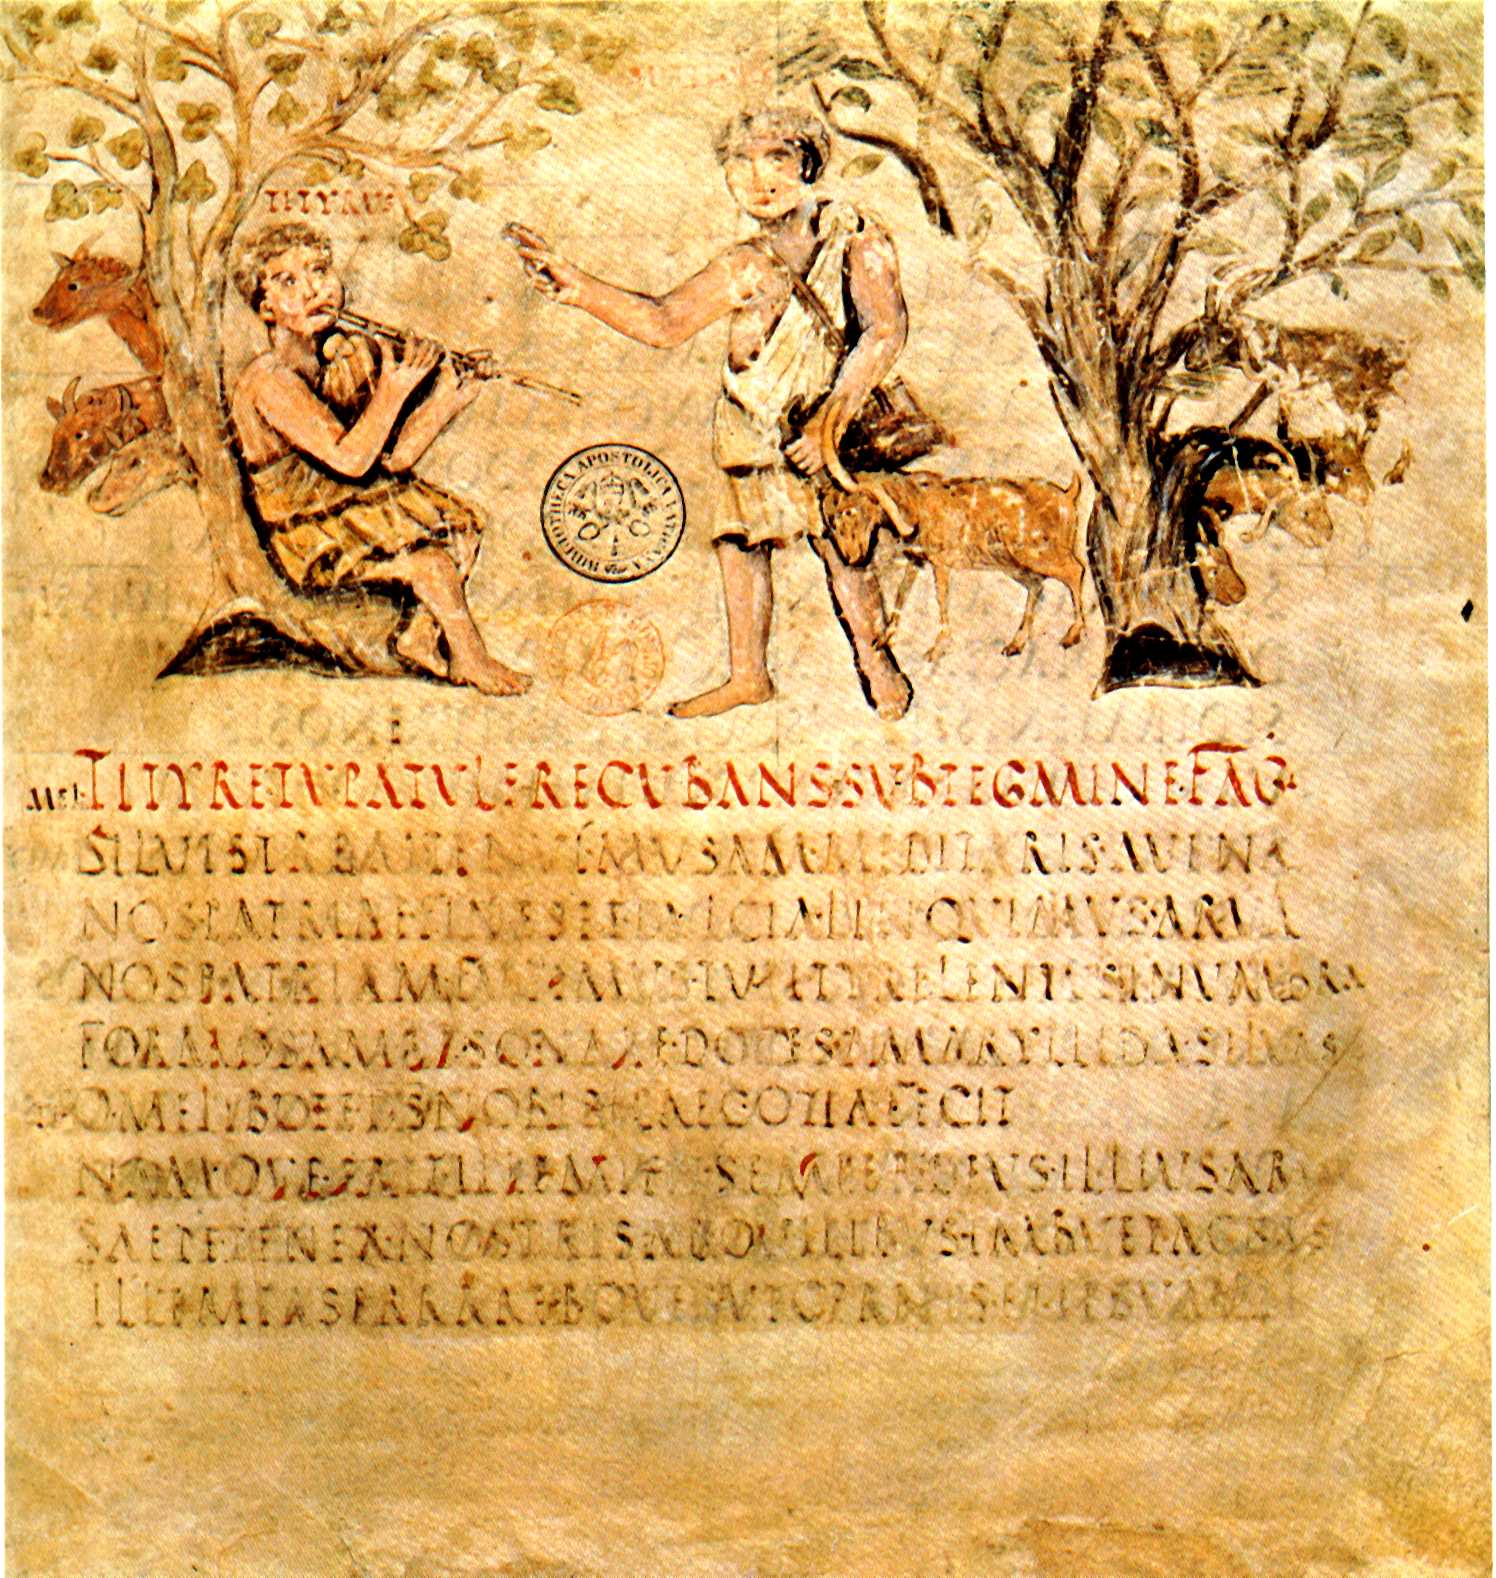 TITYRVS
BIBLIOTHECA APOSTOLICA VATICANA
MEL·TITYRE·TV·PATVLE·RECVBANS·SVB·TEGMINE·FAG·
SILVESTREM·TENVI·MVSAM·MEDITARIS·AVENA
NOS·PATRIAE·FINES·ET·DVLCIA·LINQVIMVS·ARVA
NOS·PATRIAM·FVGIMVS·TV·TITYRE·LENTVS·IN·VMBRA
FORMOSAM·RESONARE·DOCES·AMARYLLIDA·SILVAS
O·MELIBOEE·DEVS·NOBIS·HAEC·OTIA·FECIT
NAMQVE·ERIT·ILLE·MIHI·SEMPER·DEVS·ILLIVS·
SAEPE·TENER·NOSTRIS·AB·OVILIBVS·
ILLE·MEAS·ERRARE·BOVES·VT·CERNIS·ET·IPSVM